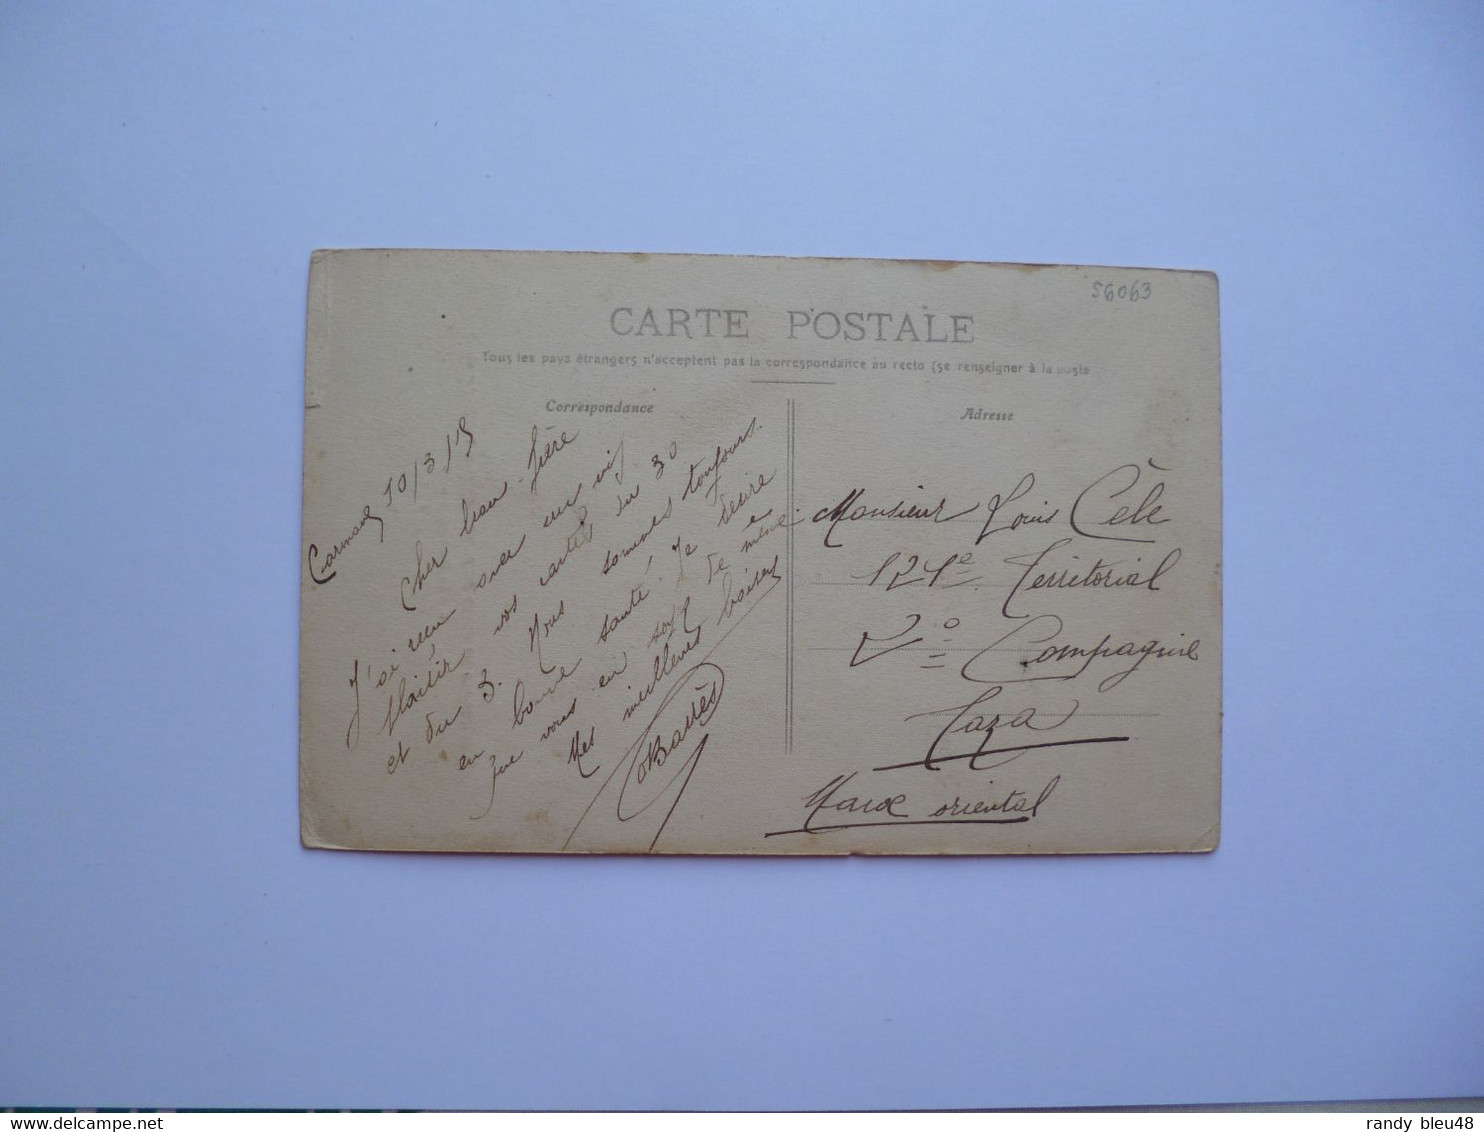 56063
CARTE POSTALE
Tous les pays étrangers n'acceptent pas la correspondance au recto (se renseigner à la poste
Correspondance
Carmaux 10/3/15
Cher beau-frère
J'ai reçu avec un vif
plaisir vos cartes du 30
et du 3. Nous sommes toujours
en bonne santé, Je désire
que vous en soyez de même.
Mes meilleurs baisers
Barrès
Adresse
Monsieur Louis Cèle
121e Territorial
2e Compagnie
Taza
Maroc oriental
randy bleu48